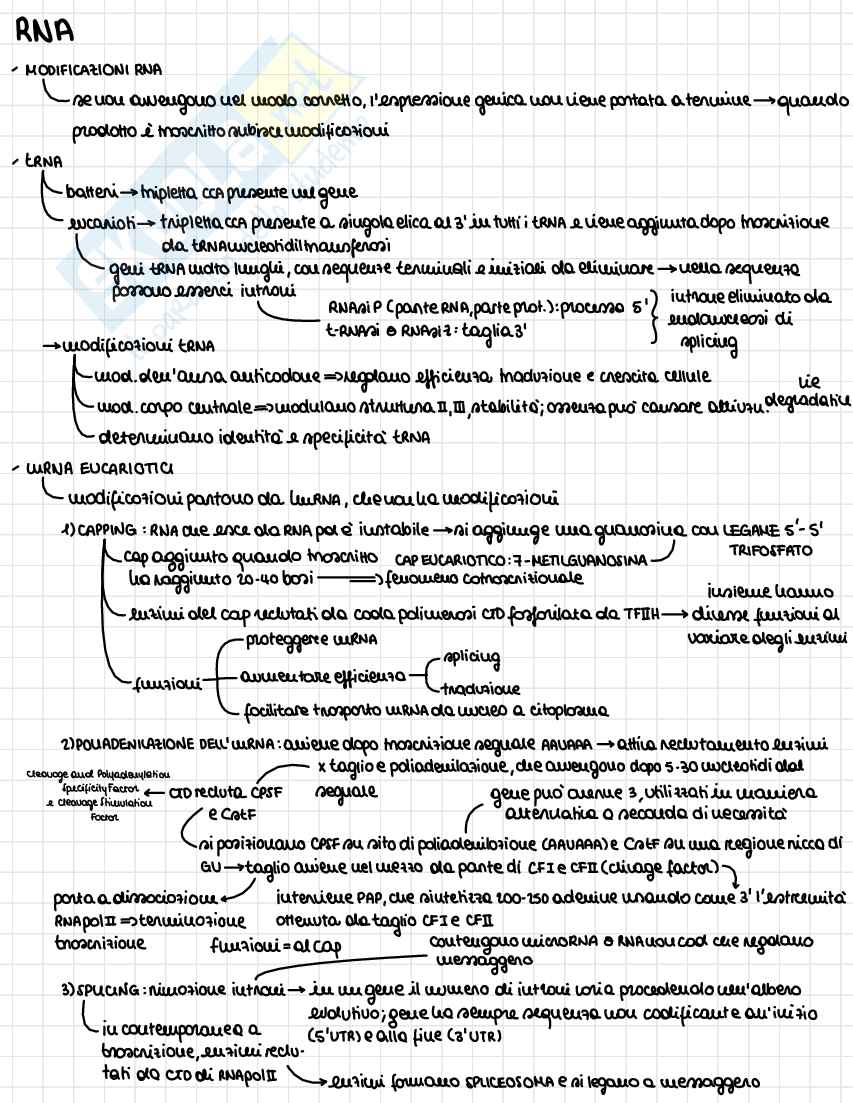 RNA
- MODIFICAZIONI RNA
se non avvengono nel modo corretto, l'espressione genica non viene portata a termine → quando
prodotto è trascritto subisce modificazioni
- tRNA
batteri → tripletta CCA presente nel gene
eucarioti → tripletta CCA presente a singola elica al 3' in tutti i tRNA e viene aggiunta dopo trascrizione
da tRNA nucleotidiltransferasi
geni tRNA molto lunghi, con sequenze terminali e iniziali da eliminare → nella sequenza
possono esserci introni
RNAsi P (parte RNA, parte prot.): processa 5'
t-RNAsi o RNAsi Z: taglia 3'
introne eliminato da
endonucleasi di
splicing
→ modificazioni tRNA
mod. dell'ansa anticodone ⇒ regolano efficienza traduzione e crescita cellule
mod. corpo centrale ⇒ modulano struttura II, III, stabilità; assenza può causare attivaz. vie
degradative
determinano identità e specificità tRNA
- mRNA EUCARIOTICI
modificazioni partono da hnRNA, che non ha modificazioni
1) CAPPING: RNA che esce da RNA pol è instabile → si aggiunge una guanosina con LEGAME 5'-5'
TRIFOSFATO
cap aggiunto quando trascritto CAP EUCARIOTICO: 7-METILGUANOSINA
ha raggiunto 20-40 basi ⇒ fenomeno cotrascrizionale
enzimi del cap reclutati da coda polimerasi CTD fosforilata da TFIIH → insieme hanno
diverse funzioni al
variare degli enzimi
funzioni
proteggere mRNA
aumentare efficienza
splicing
traduzione
facilitare trasporto mRNA da nucleo a citoplasma
2) POLIADENILAZIONE DELL'mRNA: avviene dopo trascrizione segnale AAUAAA → attiva reclutamento enzimi
x taglio e poliadenilazione, che avvengono dopo 5-30 nucleotidi dal
segnale
Cleavage and Polyadenylation
Specificity Factor
e Cleavage Stimulation
Factor
← CTD recluta CPSF
e CstF
gene può averne 3, utilizzati in maniera
alternativa a seconda di necessità
si posizionano CPSF su sito di poliadenilazione (AAUAAA) e CstF su una regione ricca di
GU → taglio avviene nel mezzo da parte di CFI e CFII (clivage factor)
porta a dissociazione
RNA pol II ⇒ terminazione
trascrizione
interviene PAP, che sintetizza 200-250 adenine usando come 3' l'estremità
ottenuta da taglio CFI e CFII
funzioni = al cap
contengono microRNA o RNA non cod che regolano
messaggero
3) SPLICING: rimozione introni → in un gene il numero di introni varia procedendo nell'albero
evolutivo; gene ha sempre sequenza non codificante all'inizio
(5'UTR) e alla fine (3'UTR)
in contemporanea a
trascrizione, enzimi reclu-
tati da CTD di RNA pol II
→ enzimi formano SPLICEOSOMA e si legano a messaggero